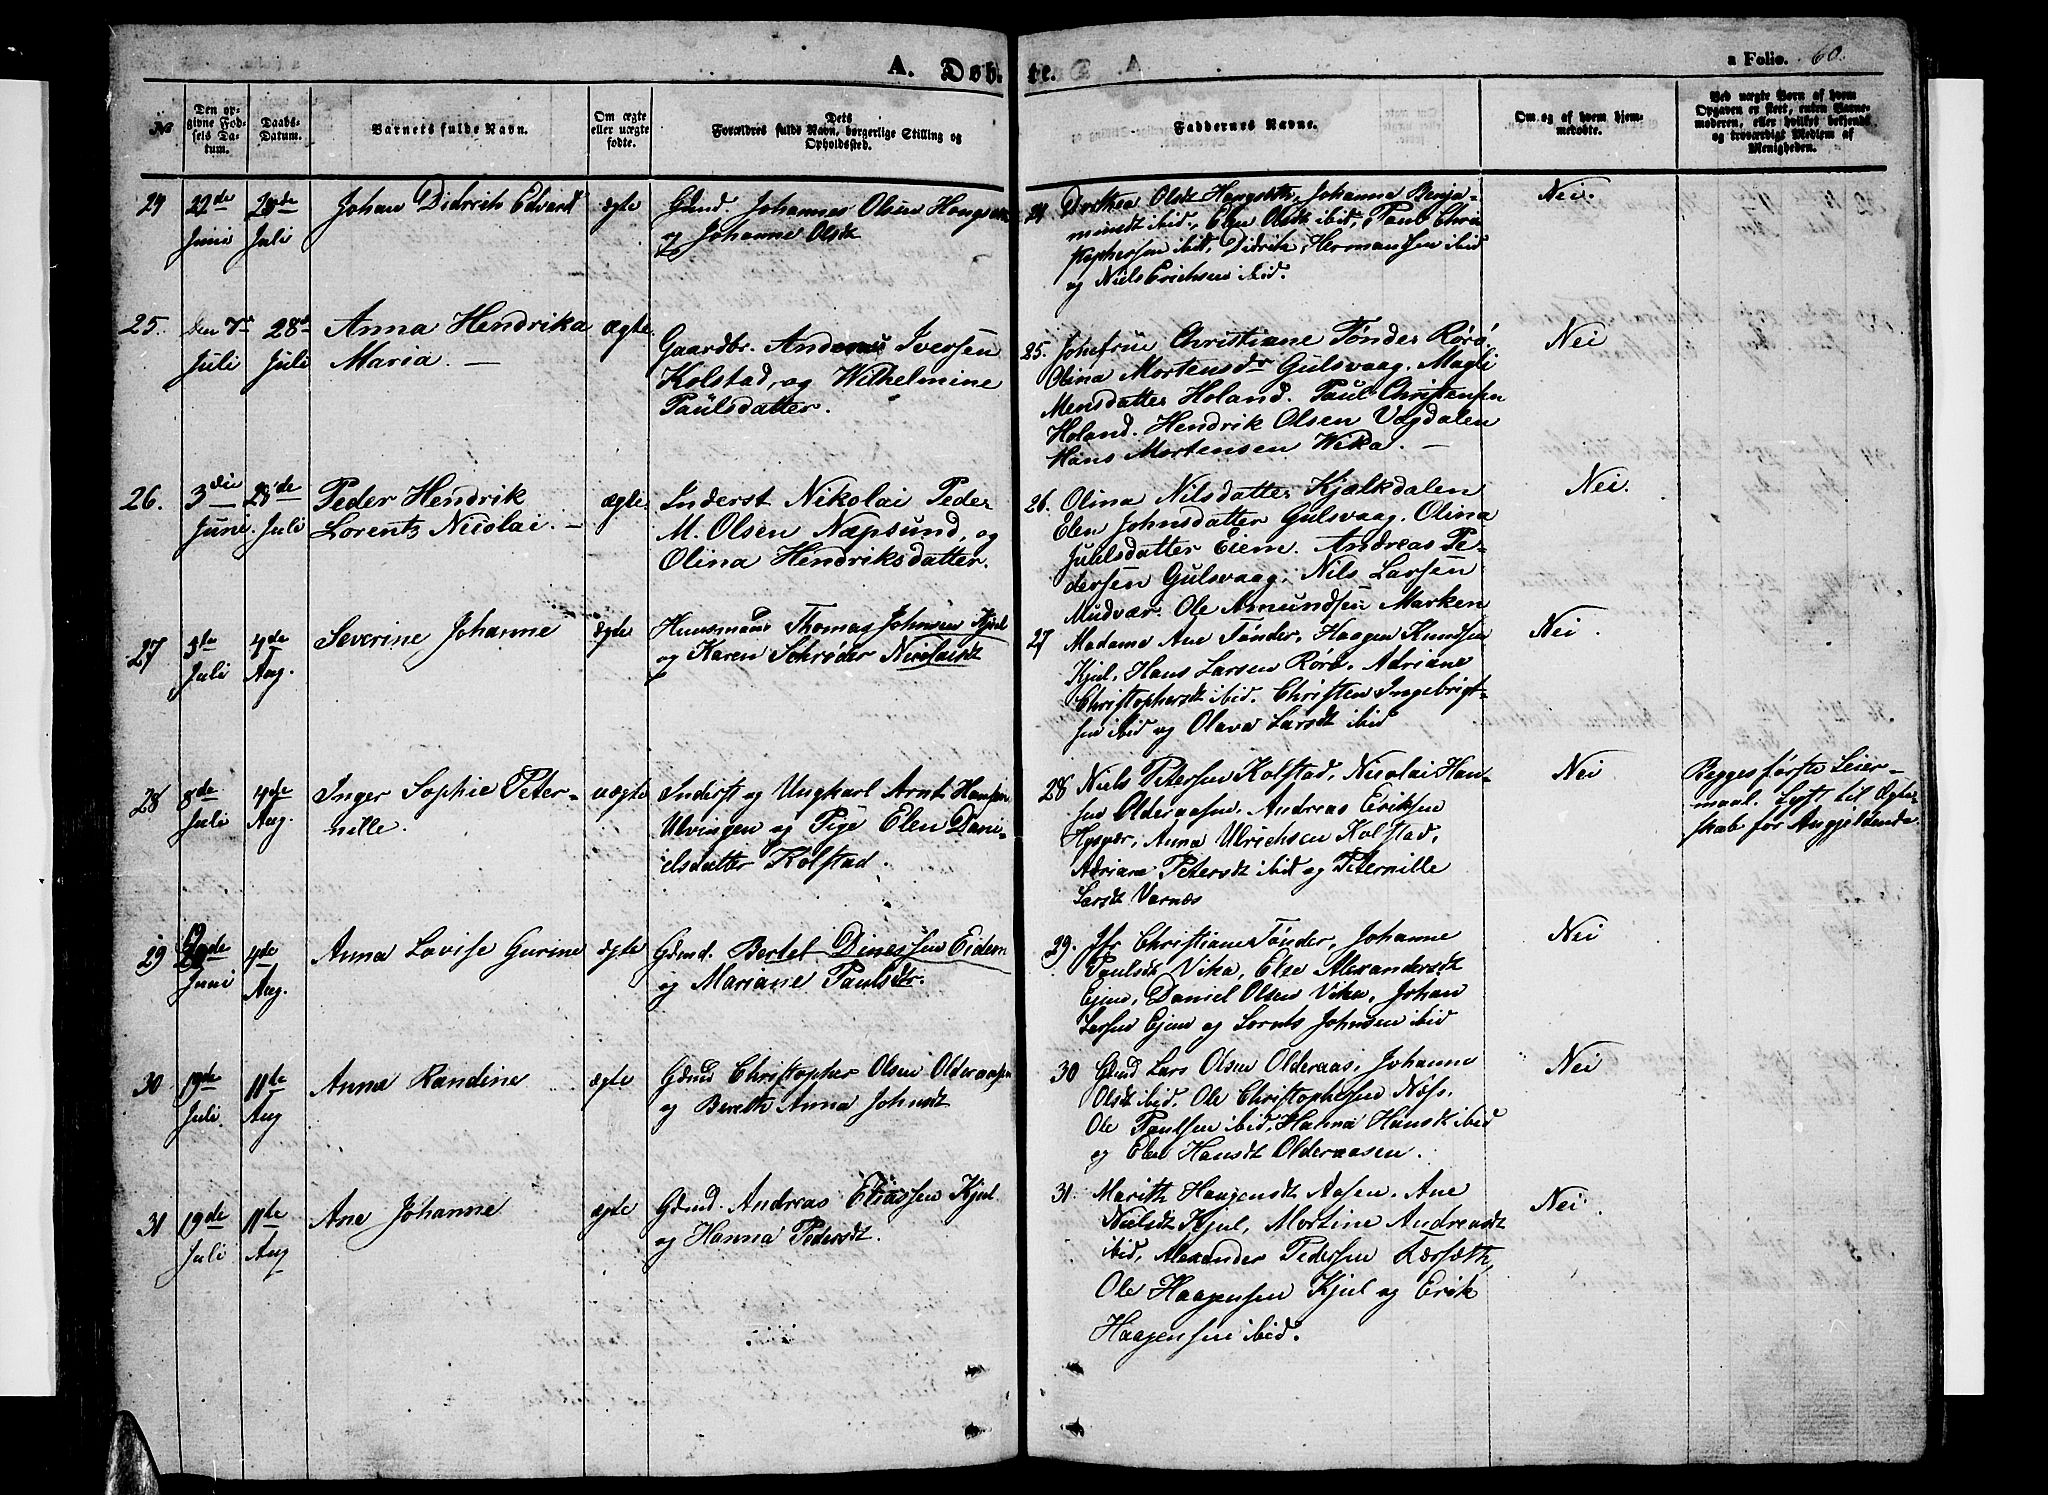 A. Døb- te.
a Folio. 60.
No
Den opgivne Fødsels Datum.
Daabs-Datum.
Barnets fulde Navn.
Om ægte eller uægte fødte.
Dets Forældres fulde Navn, borgerlige Stilling og Opholdssted.
Faddernes Navne.
Om og af hvem hjemmedøbte.
Ved uægte Børn af hvem Opgaven er skeet, enten Barnemoderen, eller hvilket bekjendt og troværdigt Medlem af Menigheden.
24
22de Juni
28de Juli
Johan Didrich Edvard
ægte
Gdmd. Johannes Olsen
og Johanne Olsdt
24
Dorthea Olsdt Johanna Benja-
minsdt ibid, Elen Olsdt ibid, Paul Chri-
stophersen ibid, Didrik Hermansen ibid
og Niels Erichsen ibid.
Nei.
25.
den 7de Juli
28de Juli
Anna Hendrika
Maria. —
ægte.
Gaardbr. Andreas Iversen
Kolstad, og Wilhelmine
Paulsdatter.
25.
Jomfrue Christiane Tønder Rørø.
Olina Mortensdr Gulsvaag. Magli
Mensdatter Holand. Paul Christensen
Holand. Hendrik Olsen Vagdalen
Hans Mortensen Wika. —
Nei
26.
3die Juni.
28de Juli
Peder Hendrik
Lorents Nicolai. —
ægte.
Inderst Nikolai Peder
M. Olsen Næpsund, og
Olina Hendriksdatter.
26.
Olina Nilsdatter Kjælkdalen
Elen Johnsdatter Gulsvaag. Olina
Juulsdatter Eiene. Andreas Pe-
dersen Gulsvaag. Nils Larsen
Mudvær. Ole Amundsen Marken
Nei.
27
3te Juli
4de Aug.
Severine Johanne
ægte
Huusmand Thomas Johnsen Kjul
og Karen Schrøder Nicolaisdt
27
Madame Ane Tønder, Haagen Knudsen
Kjul, Hans Larsen Rørø. Adriane
Christophersdt ibid. Christen Ingebrigt-
sen ibid og Olava Larsdt ibid
Nei.
28
8de Juli
4de Aug.
Inger Sophie Peter-
nille.
uægte
Inderst og Ungkarl Arnt Hansen
Ulvingen og Pige Elen Dani-
elsdatter Kolstad.
28
Niels Petersen Kolstad, Nicolai Han-
sen Olderaasen, Andreas Eriksen
Hysvær, Anna Ulrichsen Kolstad,
Adriane Petersdt ibid og Peternille
Larsdt Varnæs
Nei
Begges første Leier-
maal. Lyst til Ægte-
skab for Angjeldende
29
Juni
4de Aug.
Anna Lovise Gurine
ægte
Gdmd. Bertel Dinessen Eidem
og Mariane Paulsdtr.
29.
Jfr Christiane Tønder, Johanne
Paulsdt Vika, Else Alexandersdt
Ejene, Daniel Olsen Vika, Johan
Larsen Ejene og Lornts Johnsen ibid
Nei
30
19de Juli.
11te Aug
Anna Randine
ægte
Gdmd Christopher Olsen Olderaasen
og Bereth Anna Johnsdt
30
Gdmd Lars Olsen Olderaas, Johanne
Olsdt ibid. Ole Christophersen Næss.
Ole Paulsen ibid, Hanna Hansdt ibid
og Elen Hansdt Olderaasen.
Nei
31
19de Juli
11te Aug
Ane Johanne
ægte
Gdmd. Andreas Eliassen Kjul
og Hanna Pedersdt.
31
Marith Haagensdt Aasen, Ane
Nielsdt Kjul, Mortine Andreasdt
ibid, Alexander Pedersen
Ole Haagensen Kjul og Erik
Haagensen ibid.
Nei.